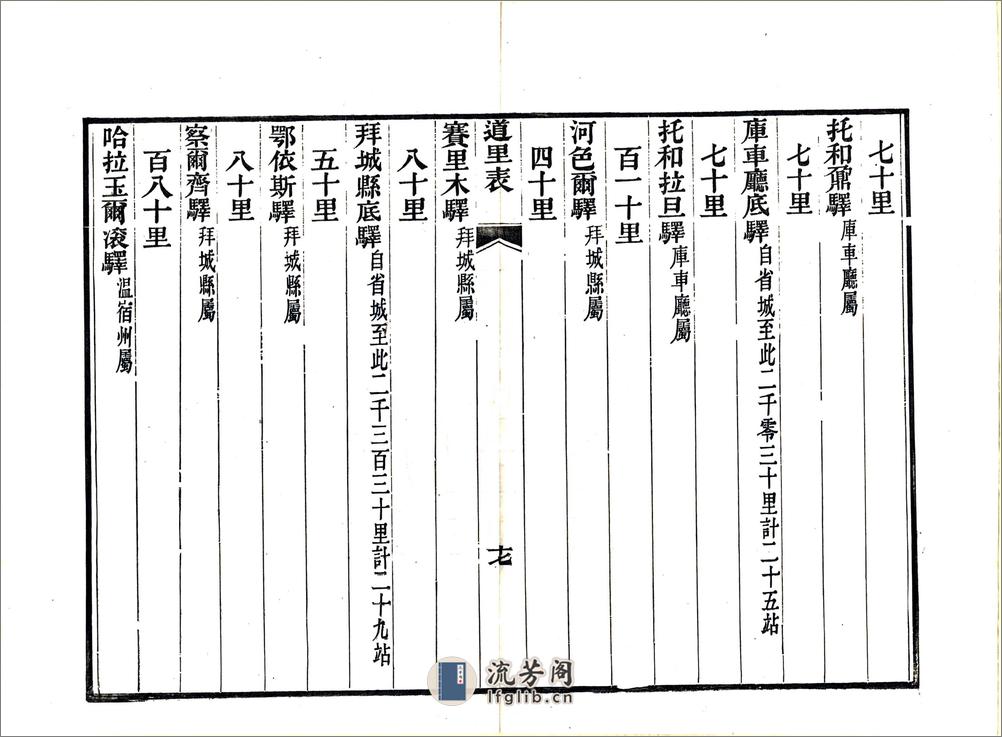 七十里
托和鼐驛 庫車廳屬
七十里
庫車廳底驛 自省城至此二千零三十里計二十五站
七十里
托和拉旦驛 庫車廳屬
百一十里
河色爾驛 拜城縣屬
四十里
道里表 十七
賽里木驛 拜城縣屬
八十里
拜城縣底驛 自省城至此二千三百三十里計二十九站
五十里
鄂依斯驛 拜城縣屬
八十里
察爾齊驛 拜城縣屬
百八十里
哈拉玉爾滾驛 溫宿州屬
流芳阁
lfglib.cn